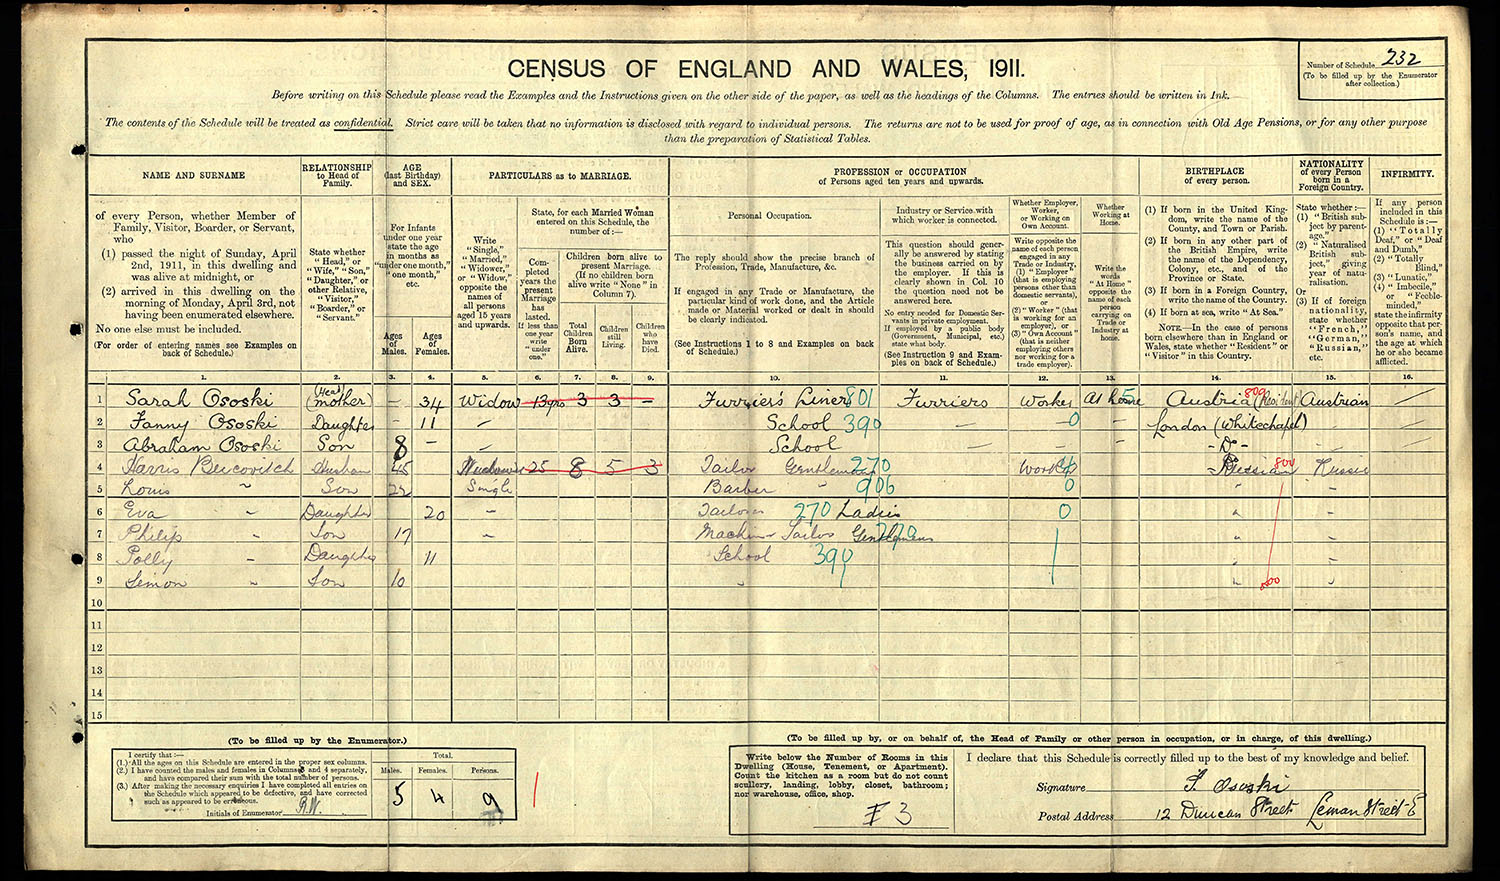 CENSUS OF ENGLAND AND WALES, 1911.
Number of Schedule 232
(To be filled up by the Enumerator
after collection.)
Before writing on this Schedule please read the Examples and the Instructions given on the other side of the paper, as well as the headings of the Columns. The entries should be written in Ink.
The contents of the Schedule will be treated as confidential. Strict care will be taken that no information is disclosed with regard to individual persons. The returns are not to be used for proof of age, as in connection with Old Age Pensions, or for any other purpose
than the preparation of Statistical Tables.
NAME AND SURNAME
of every Person, whether Member of
Family, Visitor, Boarder, or Servant,
who
(1) passed the night of Sunday, April
2nd, 1911, in this dwelling and
was alive at midnight, or
(2) arrived in this dwelling on the
morning of Monday, April 3rd, not
having been enumerated elsewhere.
No one else must be included.
(For order of entering names see Examples on
back of Schedule.)
RELATIONSHIP
to Head of
Family.
State whether
"Head," or
"Wife," "Son,"
"Daughter," or
other Relative,
"Visitor,"
"Boarder," or
"Servant."
AGE
(last Birthday)
and SEX.
For Infants
under one year
state the age
in months as
"under one month,"
"one month,"
etc.
Ages
of
Males.
Ages
of
Females.
PARTICULARS as to MARRIAGE.
Write
"Single,"
"Married,"
"Widower,"
or "Widow,"
opposite the
names of
all persons
aged 15 years
and upwards.
State, for each Married Woman
entered on this Schedule, the
number of:—
Com-
pleted
years the
present
Marriage
has
lasted.
If less than
one year
write
"under
one."
Children born alive to
present Marriage.
(If no children born
alive write "None" in
Column 7).
Total
Children
Born
Alive.
Children
still
Living.
Children
who
have
Died.
PROFESSION or OCCUPATION
of Persons aged ten years and upwards.
Personal Occupation.
The reply should show the precise branch of
Profession, Trade, Manufacture, &c.
If engaged in any Trade or Manufacture, the
particular kind of work done, and the Article
made or Material worked or dealt in should
be clearly indicated.
(See Instructions 1 to 8 and Examples on back
of Schedule.)
Industry or Service with
which worker is connected.
This question should gener-
ally be answered by stating
the business carried on by
the employer. If this is
clearly shown in Col. 10
the question need not be
answered here.
No entry needed for Domestic Ser-
vants in private employment.
If employed by a public body
(Government, Municipal, etc.)
state what body.
(See Instruction 9 and Exam-
ples on back of Schedule.)
Whether Employer,
Worker,
or Working on
Own Account.
Write opposite the
name of each person
engaged in any
Trade or Industry,
(1) "Employer"
(that is employing
persons other than
domestic servants),
or
(2) "Worker" (that
is working for an
employer), or
(3) "Own Account"
(that is neither
employing others
nor working for a
trade employer).
Whether
Working at
Home.
Write the
words
"At Home"
opposite the
name of each
person
carrying on
Trade or
Industry at
home.
BIRTHPLACE
of every person.
(1) If born in the United King-
dom, write the name of the
County, and Town or Parish.
(2) If born in any other part of
the British Empire, write
the name of the Dependency,
Colony, etc., and of the
Province or State.
(3) If born in a Foreign Country,
write the name of the Country.
(4) If born at sea, write "At Sea."
NOTE.—In the case of persons
born elsewhere than in England or
Wales, state whether "Resident" or
"Visitor" in this Country.
NATIONALITY
of every Person
born in a
Foreign Country.
State whether:—
(1) "British sub-
ject by parent-
age."
(2) "Naturalised
British sub-
ject," giving
year of natu-
ralisation.
Or
(3) If of foreign
nationality,
state whether
"French,"
"German,"
"Russian,"
etc.
INFIRMITY.
If any person
included in this
Schedule is:—
(1) "Totally
Deaf," or "Deaf
and Dumb,"
(2) "Totally
Blind,"
(3) "Lunatic,"
(4) "Imbecile,"
or "Feeble-
minded,"
state the infirmity
opposite that per-
son's name, and
the age at which
he or she became
afflicted.
1. 2. 3. 4. 5. 6. 7. 8. 9. 10. 11. 12. 13. 14. 15. 16.
1 Sarah Ososki (Head) (mother) – 34 Widow 13 yrs 3 3 – Furrier's Liner 801 Furriers Worker At home 5 Austria (Resident) 800 Austrian
2 Fanny Ososki Daughter – 11 – School 390 – 0 London (Whitechapel)
3 Abraham Ososki Son 8 – – School – – Do –
4 Harris Bercovitch 45 25 8 5 3 Tailor Gentlemens 270 Worker Russian 800 Russia
5 Louis " Son 22 Single Barber " 906 0 "
6 Eva " Daughter 20 " 270 Ladies 0 "
7 Philip " Son 17 " Machin Tailor Gentlemens 270 "
8 Polly " Daughter 11 School 390 "
9 Simon " Son 10 " " 800
10
11
12
13
14
15
(To be filled up by the Enumerator.)
I certify that:—
(1.) All the ages on this Schedule are entered in the proper sex columns.
(2.) I have counted the males and females in Columns 3 and 4 separately,
and have compared their sum with the total number of persons.
(3.) After making the necessary enquiries I have completed all entries on
the Schedule which appeared to be defective, and have corrected
such as appeared to be erroneous.
Initials of Enumerator R.W.
Total.
Males. Females. Persons.
5 4 9
(To be filled up by, or on behalf of, the Head of Family or other person in occupation, or in charge, of this dwelling.)
Write below the Number of Rooms in this
Dwelling (House, Tenement, or Apartment).
Count the kitchen as a room but do not count
scullery, landing, lobby, closet, bathroom;
nor warehouse, office, shop.
3
I declare that this Schedule is correctly filled up to the best of my knowledge and belief.
Signature S. Ososki
Postal Address 12 Duncan Street Leman Street E